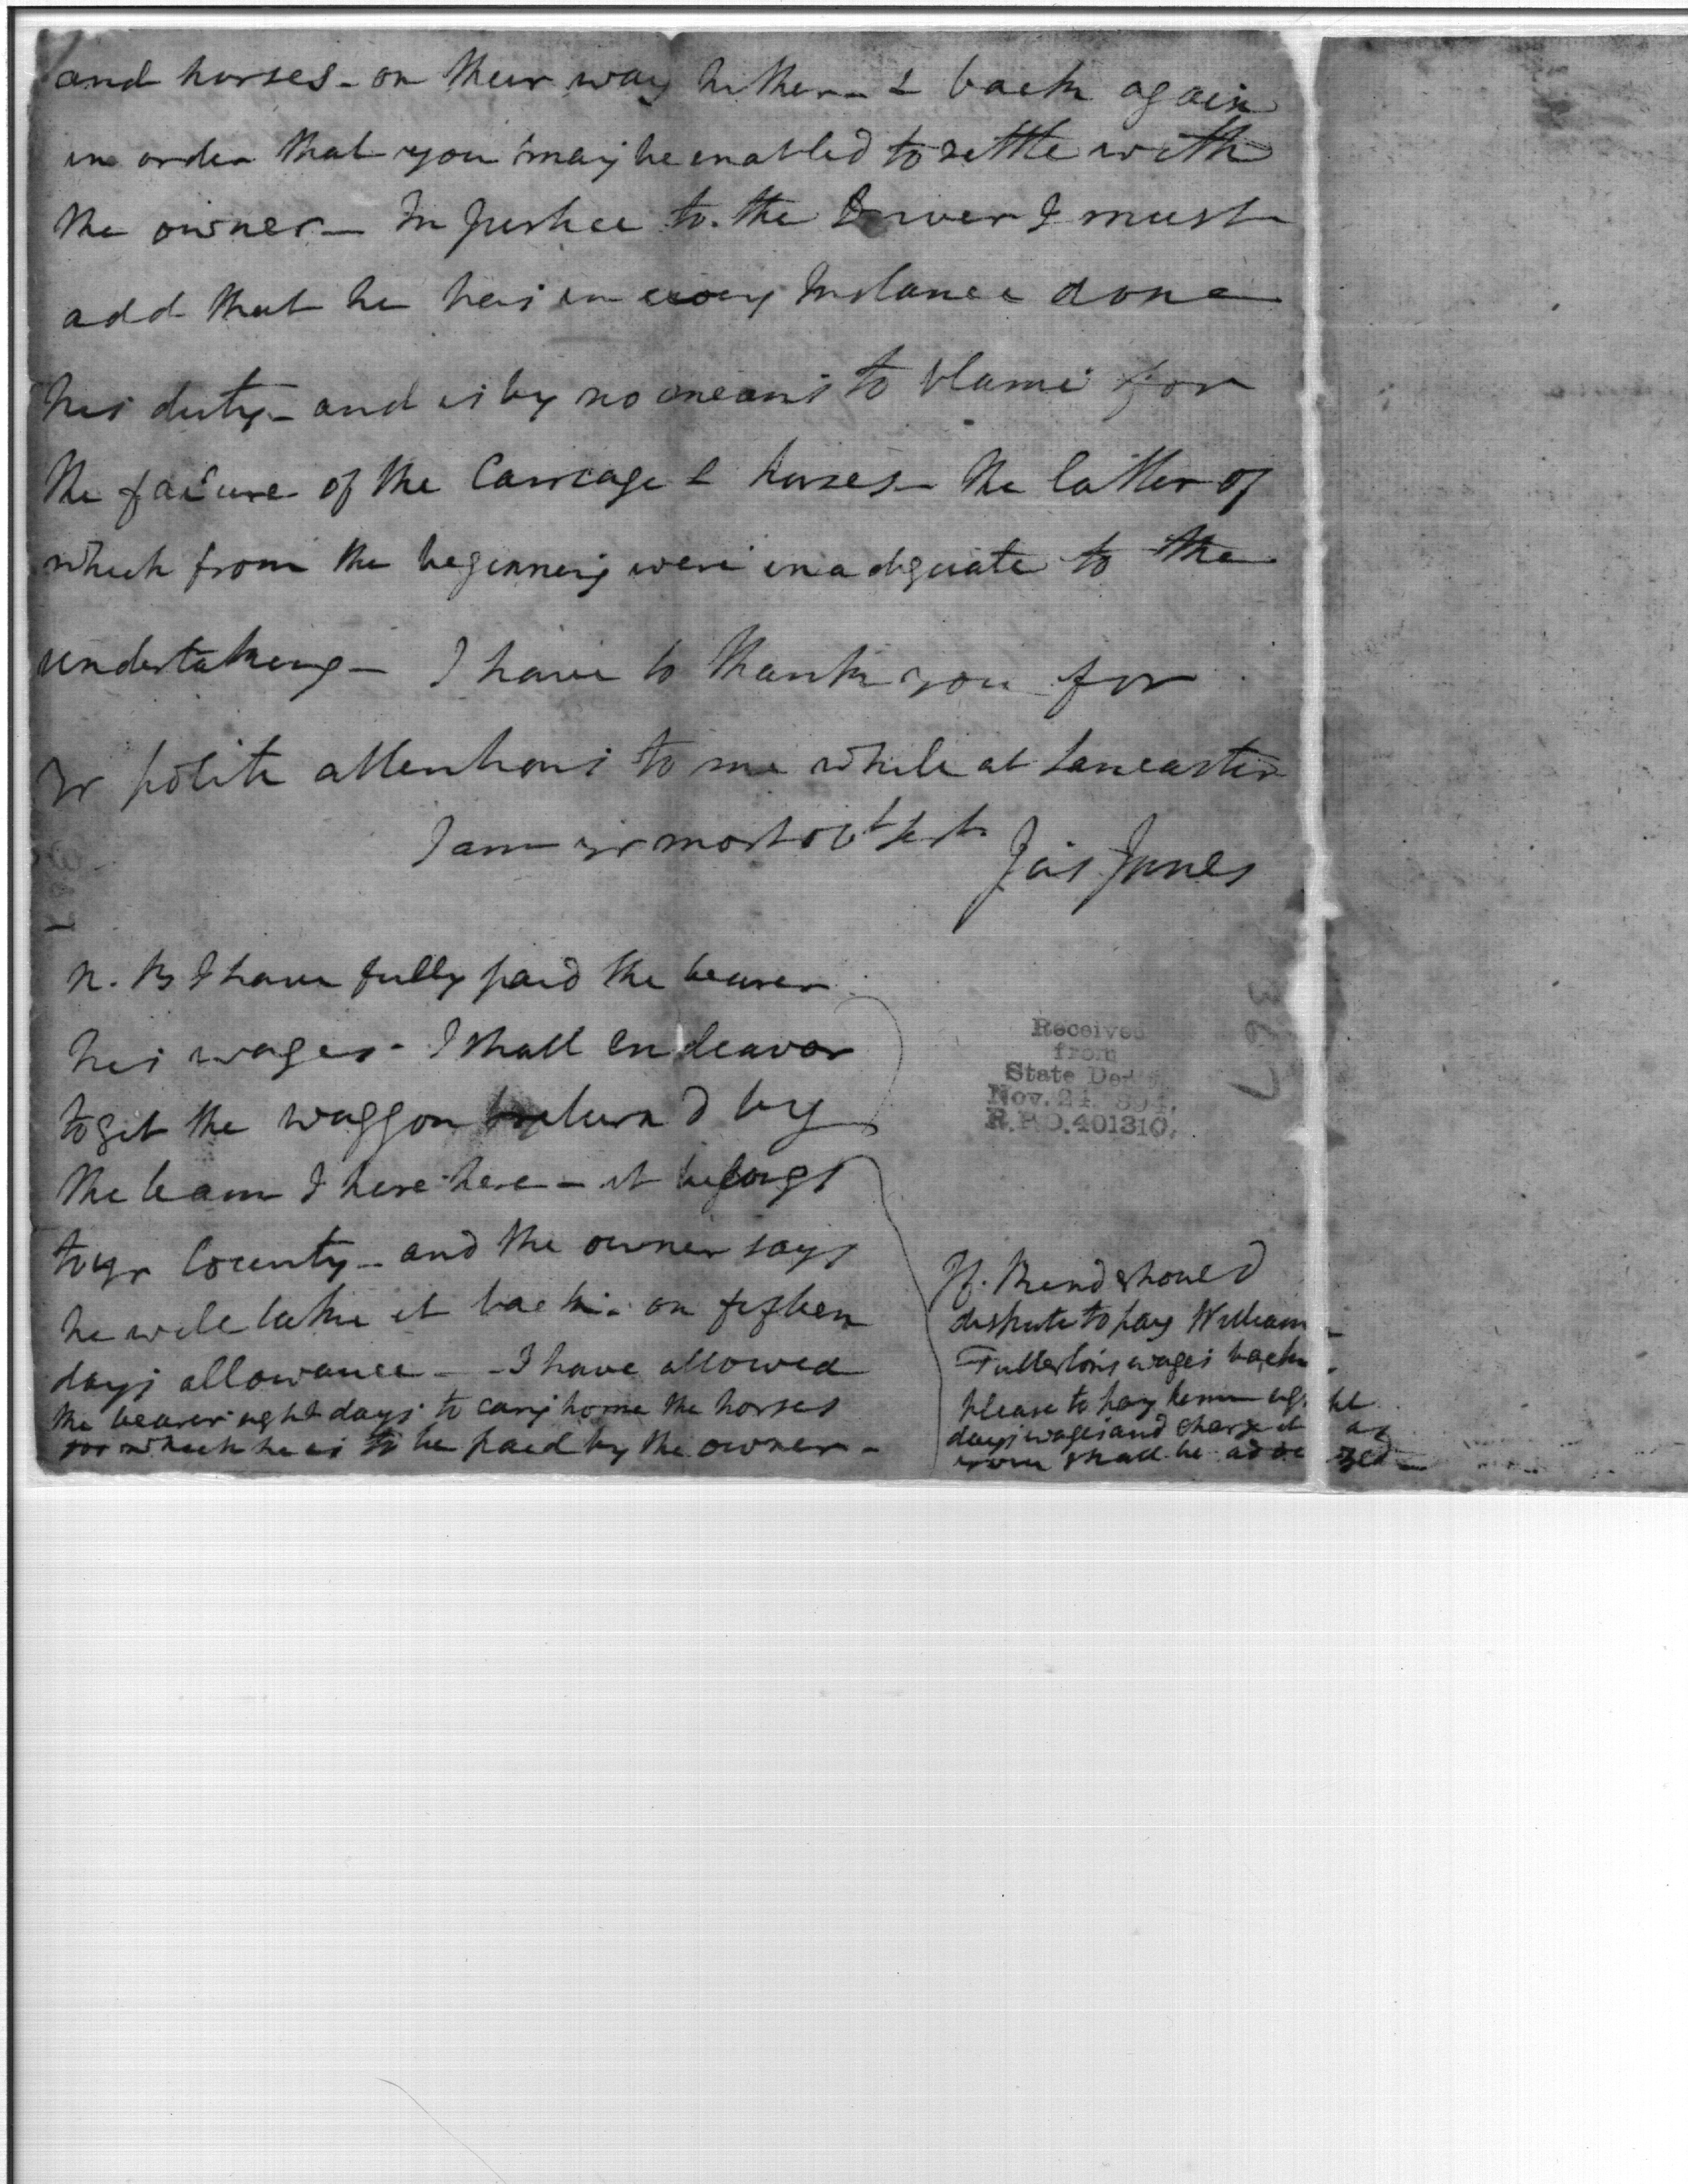 and horses - on their way hither - & back again
in order that you may be enabled to settle with
the owner - In Justice to the Driver I must
add that he has in every Instance done
his duty - and is by no means to blame for
the failure of the Carriage & horses - the latter of
which from the beginning were inadequate to the
undertaking - I have to thank you for
Yr polite attentions to me while at Lancaster
I am yr most obt Sert
Jas Jones
N. B I have fully paid the bearer
his wages - I shall endeavor
to git the waggon return'd by
the team I here - it belongs
to yr County - and the owner says
he will take it back - on fifteen
days allowance - I have allowed
the bearer eight days to cary home the horses
for which he is to be paid by the owner -
If should
dispute to pay William
Fullerton's wages back
Please to pay him eight
days wages and charge it as
you shall be
Received
from
State Dept
Nov. 24. 1894.
R.P.O.401310.